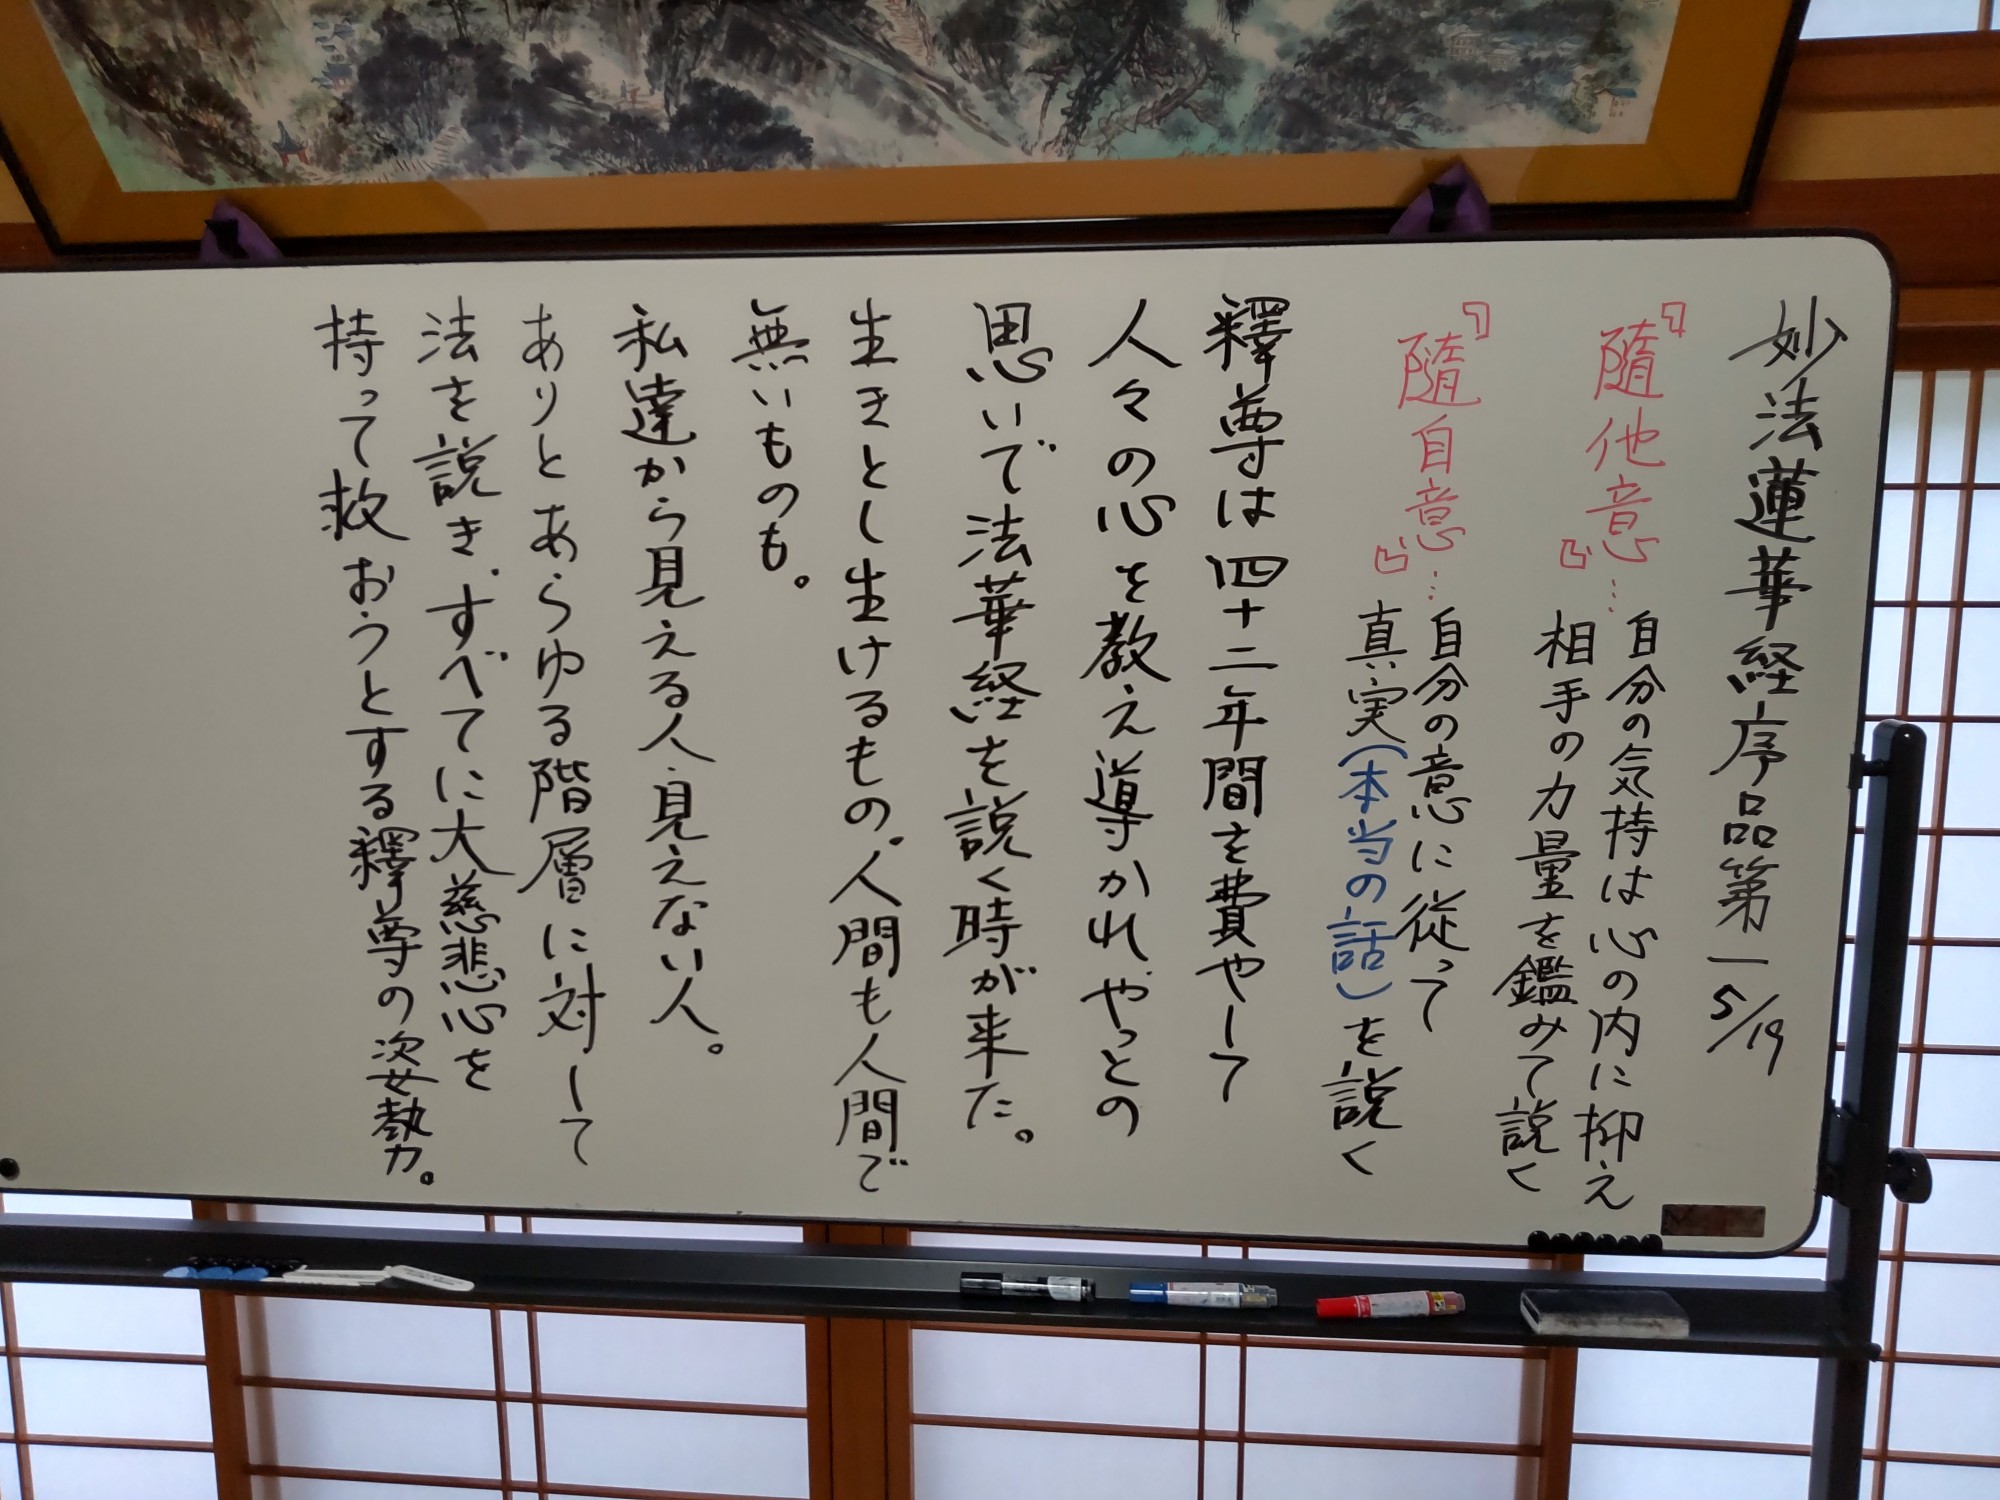 妙法蓮華経序品第一 5/19
『隨他意』… 自分の気持は心の内に抑え
相手の力量を鑑みて説く
『隨自意』… 自分の意に従って
真実(本当の話)を説く
釋尊は四十二年間を費やして
人々の心を教え導かれ、やっとの
思いで法華経を説く時が来た。
生きとし生けるもの、人間も人間で
無いものも。
私達から見える人、見えない人。
ありとあらゆる階層に対して
法を説き、すべてに大慈悲心を
持って救おうとする釋尊の姿勢力。